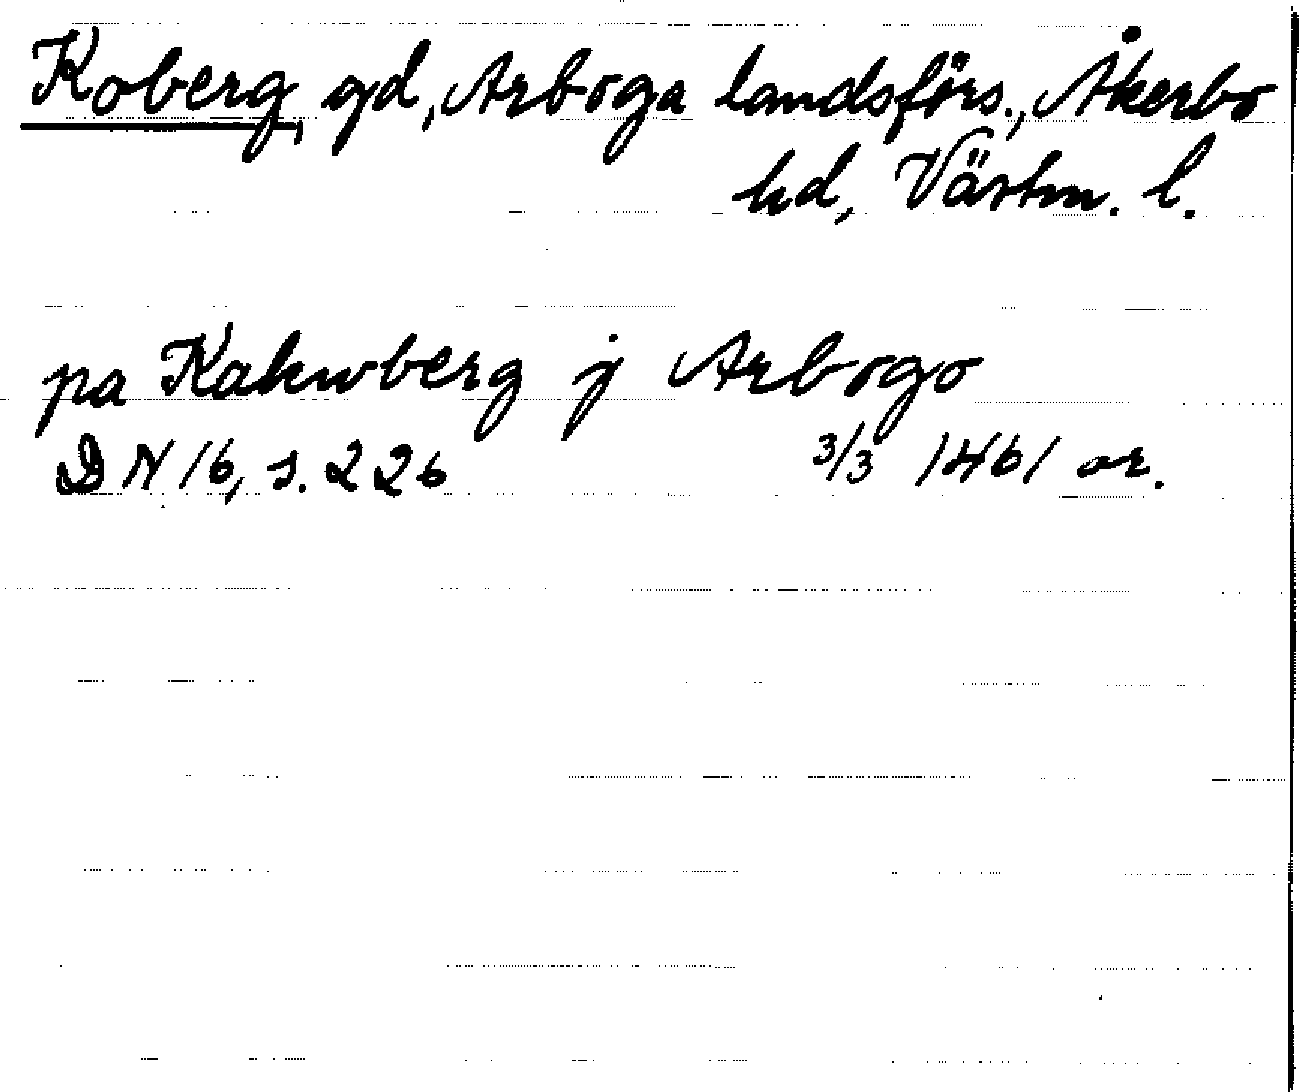 Koberg, gd, Arboga landsförs., Åkerbo
hd, Västm. l.
pa Kakwberg j Arbogo
DN 16, s. 226 3/3 1461 or.